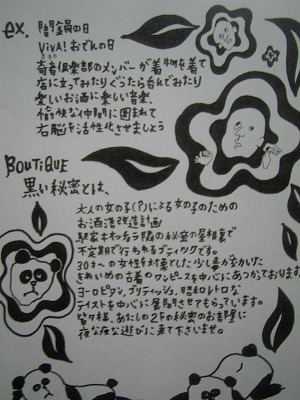 ex. 閏歳員の日
Viva! おでんの日
奇者倶楽部のメンバーが着物を着て
店に立ってみたりぐうたら呑んでみたり
楽しいお酒に楽しい音楽、
愉快な仲間に囲まれて
右脳を活性化させましょう
BOUTIQUE
黒い秘密とは、
大人の女の子(?)による女の子のための
お洒落改造計画
隣の秘密の屋根裏で
不定期で行われるブティックです。
30才への女性を対象とした少し毒が効いた
きれいめの古着のワンピースを中心にあつかっております
ヨーロピアン、ブリティッシュ、昭和レトロな
テイストを中心に展開させてもらっています。
皆々様、あたしの2Fの秘密のお部屋に
夜な夜な遊びに来て下さいませ。